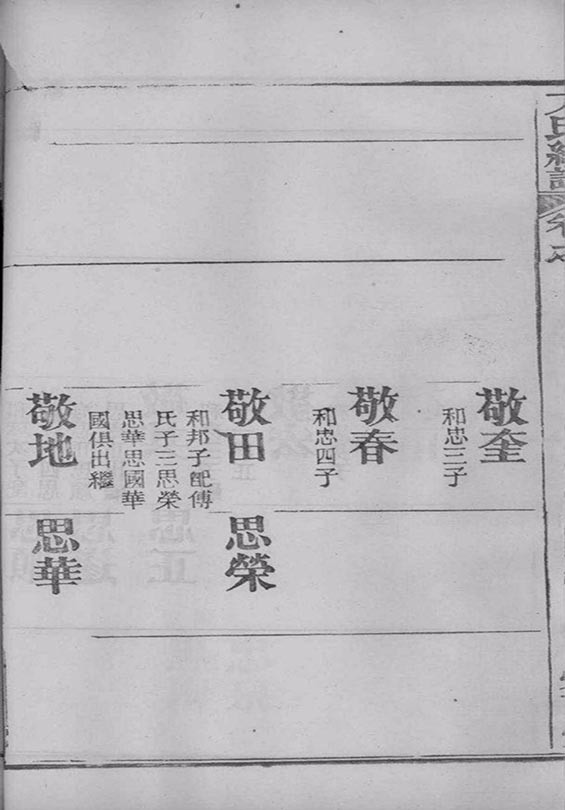 敬奎
和忠三子
敬春
和忠四子
敬田
和邦子配傅
氏子三思榮
思華思國華
國俱出繼
思榮
敬地
思華